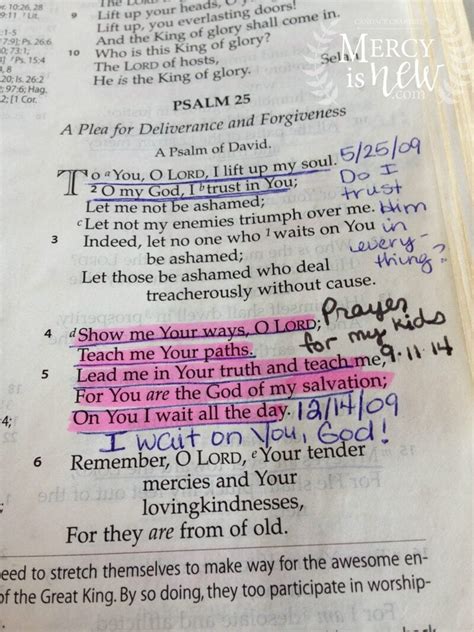 10:26, 28
9:11
1-5
7:9]; Ps. 26:6
]; Ps. 15:4
20; Is. 26:2
2:6; Hag.
2; [1 Cor.
9 Lift up your heads, O
Lift up, you everlasting doors!
And the King of glory shall come in.
10 Who is this King of glory?
The LORD of hosts,
He is the King of glory. Selah
CANDACE CRABTREE
MERCY
is new
.com
PSALM 25
A Plea for Deliverance and Forgiveness
A Psalm of David.
To a You, O LORD, I lift up my soul. 5/25/09
2 O my God, I b trust in You; Do I
Let me not be ashamed; trust
c Let not my enemies triumph over me. Him
3 Indeed, let no one who 1 waits on You in
be ashamed; every-
Let those be ashamed who deal thing?
treacherously without cause.
4 d Show me Your ways, O LORD; Prayer
Teach me Your paths. for my kids
5 Lead me in Your truth and teach me, 9-11-14
For You are the God of my salvation;
On You I wait all the day. 12/14/09
I wait on You, God!
6 Remember, O LORD, e Your tender
mercies and Your
lovingkindnesses,
For they are from of old.
eed to stretch themselves to make way for the awesome en-
of the Great King. By so doing, they too participate in worship-